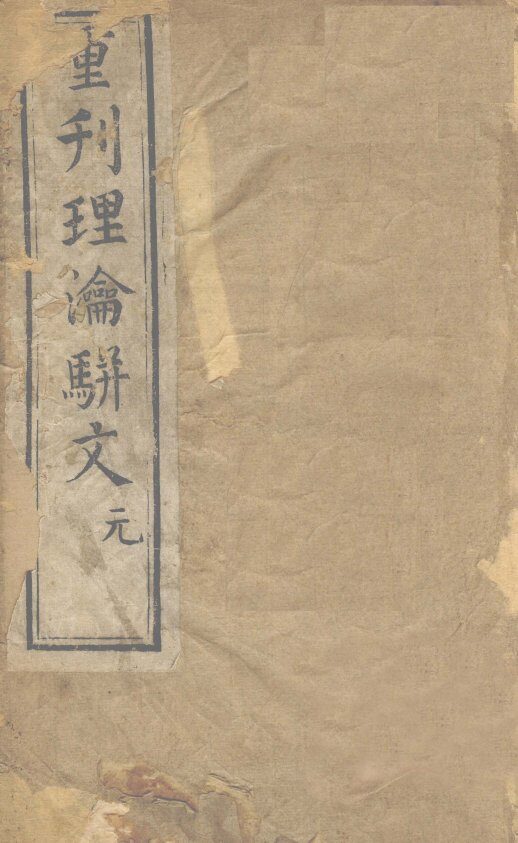 重刊理瀹駢文
元